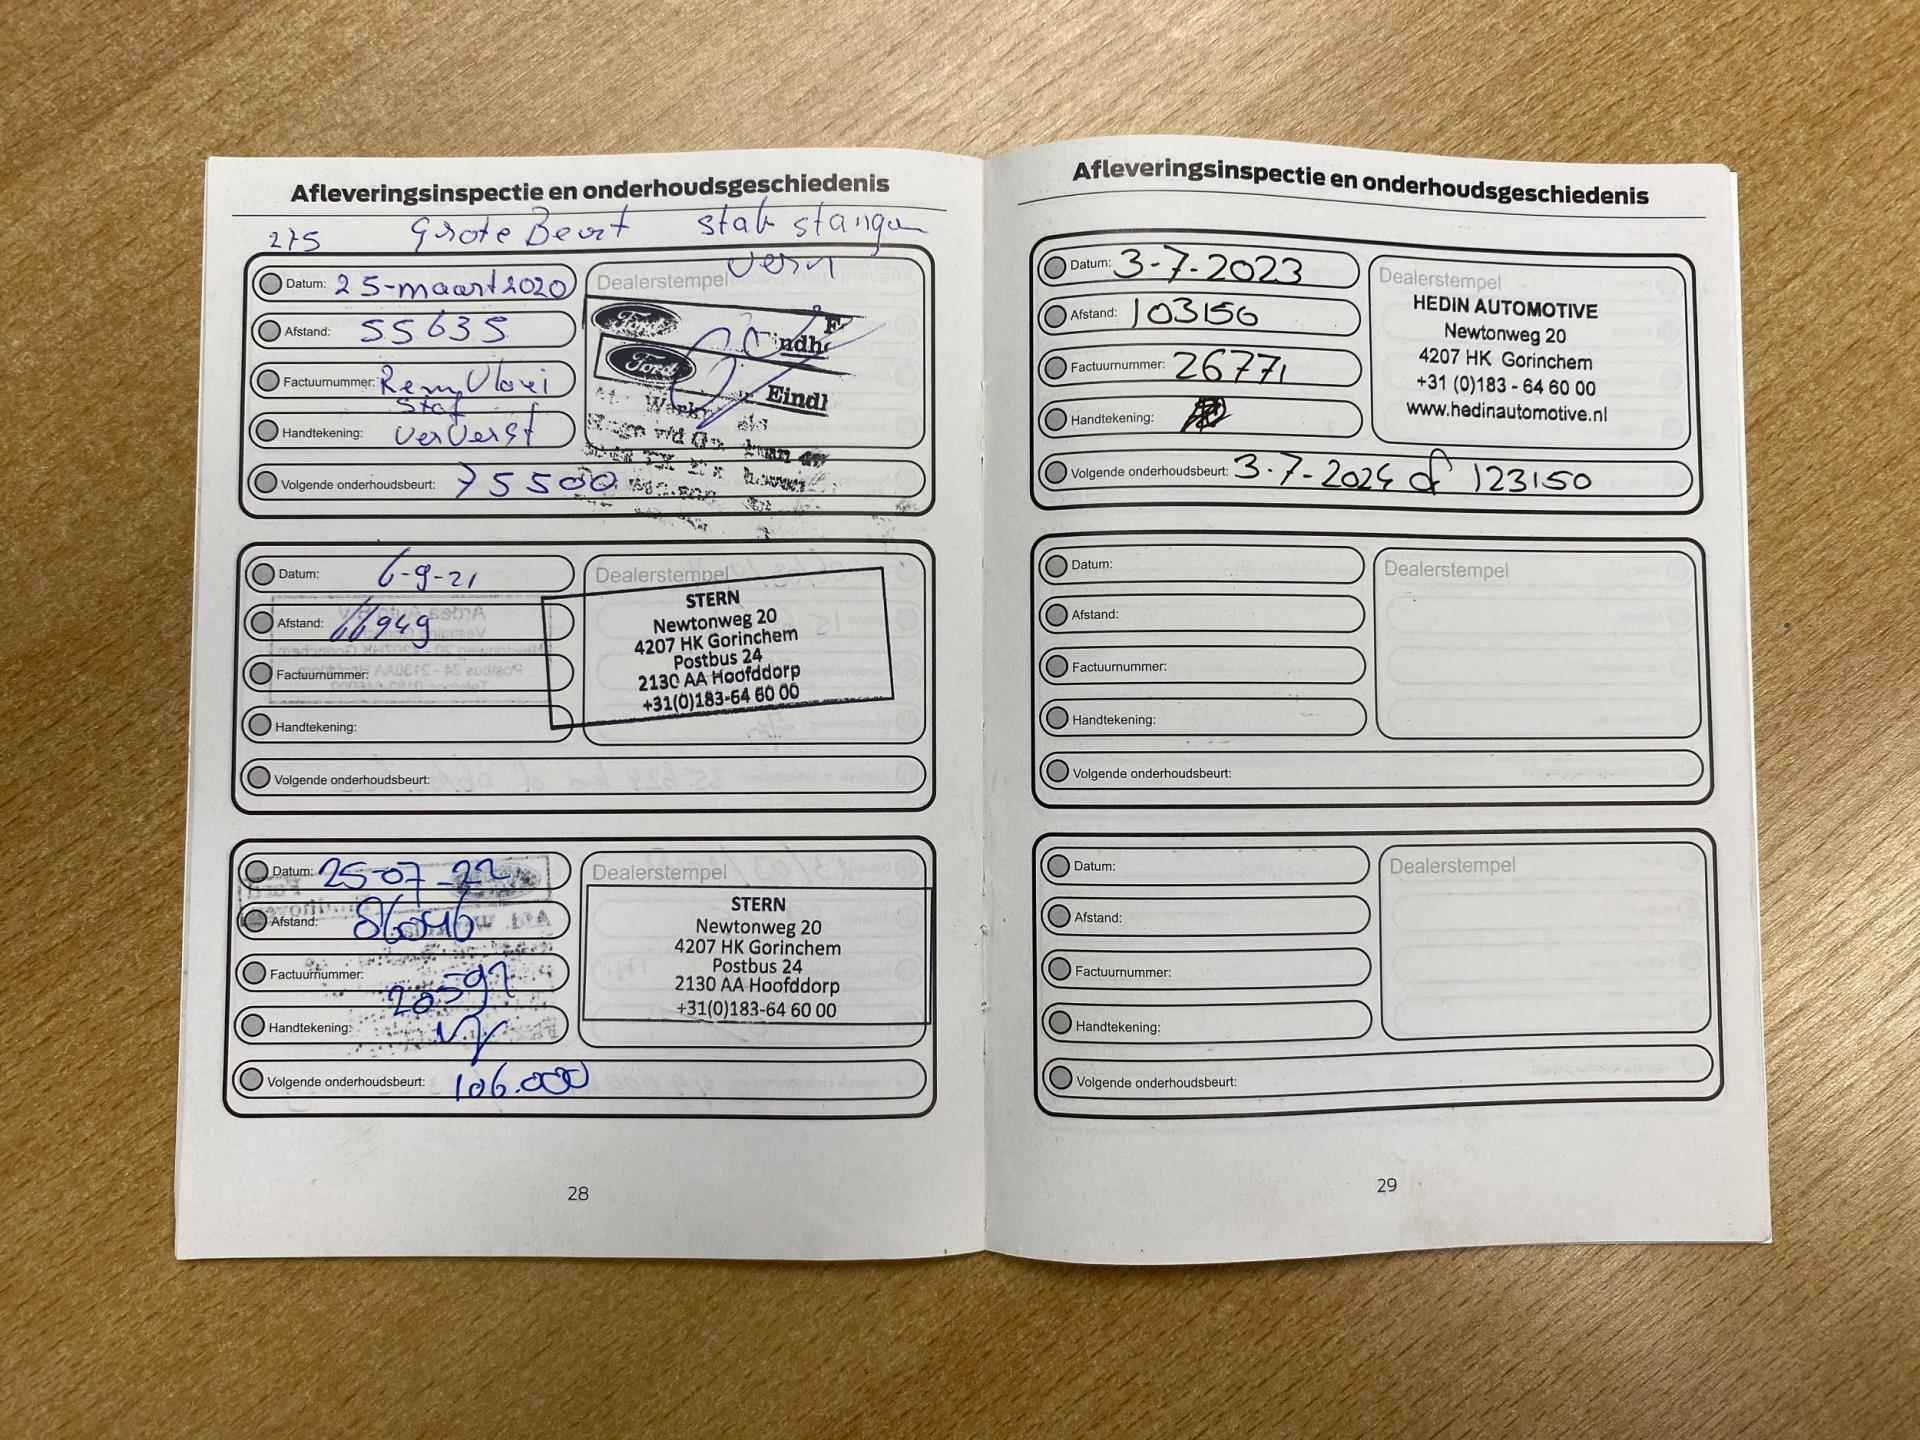 Afleveringsinspectie en onderhoudsgeschiedenis
275 Grote Beurt stab stangen
vern
Datum: 25-maart 2020
Afstand: 55635
Factuurnummer: Rem Vloei
stof
Handtekening: ververst
Volgende onderhoudsbeurt: 75500
Dealerstempel
Ford
Eindh
Ford
Eindh
Datum: 6-9-21
Afstand: 66949
Factuurnummer:
Handtekening:
Volgende onderhoudsbeurt:
Dealerstempel
STERN
Newtonweg 20
4207 HK Gorinchem
Postbus 24
2130 AA Hoofddorp
+31(0)183-64 60 00
Datum: 25-07-22
Afstand: 86046
Factuurnummer: 20597
Handtekening:
Volgende onderhoudsbeurt: 106.000
Dealerstempel
STERN
Newtonweg 20
4207 HK Gorinchem
Postbus 24
2130 AA Hoofddorp
+31(0)183-64 60 00
28
Afleveringsinspectie en onderhoudsgeschiedenis
Datum: 3-7-2023
Afstand: 103150
Factuurnummer: 26771
Handtekening:
Volgende onderhoudsbeurt: 3-7-2024 of 123150
Dealerstempel
HEDIN AUTOMOTIVE
Newtonweg 20
4207 HK Gorinchem
+31 (0)183 - 64 60 00
www.hedinautomotive.nl
Datum:
Afstand:
Factuurnummer:
Handtekening:
Volgende onderhoudsbeurt:
Dealerstempel
Datum:
Afstand:
Factuurnummer:
Handtekening:
Volgende onderhoudsbeurt:
Dealerstempel
29